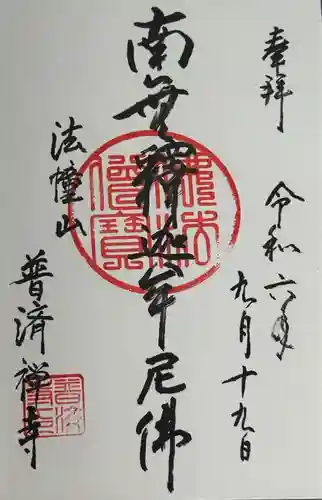 奉拝
令和六年
九月十九日
南無釋迦牟尼佛
法幢山
普済禅寺
佛法僧寶